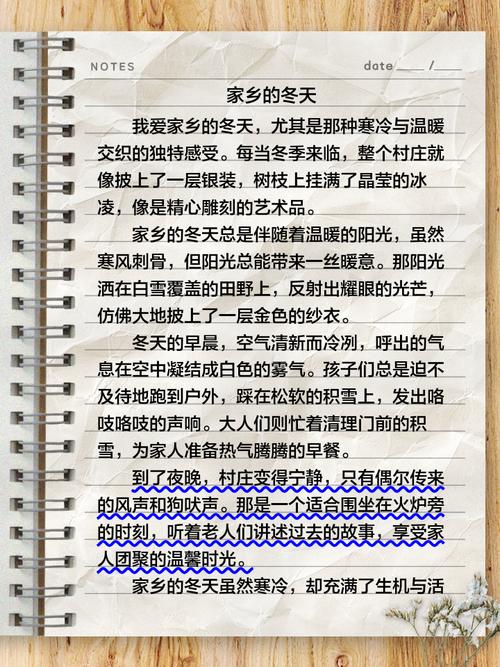 NOTES
date____ /____
家乡的冬天
我爱家乡的冬天，尤其是那种寒冷与温暖
交织的独特感受。每当冬季来临，整个村庄就
像披上了一层银装，树枝上挂满了晶莹的冰
凌，像是精心雕刻的艺术品。
家乡的冬天总是伴随着温暖的阳光，虽然
寒风刺骨，但阳光总能带来一丝暖意。那阳光
洒在白雪覆盖的田野上，反射出耀眼的光芒，
仿佛大地披上了一层金色的纱衣。
冬天的早晨，空气清新而冷冽，呼出的气
息在空中凝结成白色的雾气。孩子们总是迫不
及待地跑到户外，踩在松软的积雪上，发出咯
吱咯吱的声响。大人们则忙着清理门前的积
雪，为家人准备热气腾腾的早餐。
到了夜晚，村庄变得宁静，只有偶尔传来
的风声和狗吠声。那是一个适合围坐在火炉旁
的时刻，听着老人们讲述过去的故事，享受家
人团聚的温馨时光。
家乡的冬天虽然寒冷，却充满了生机与活